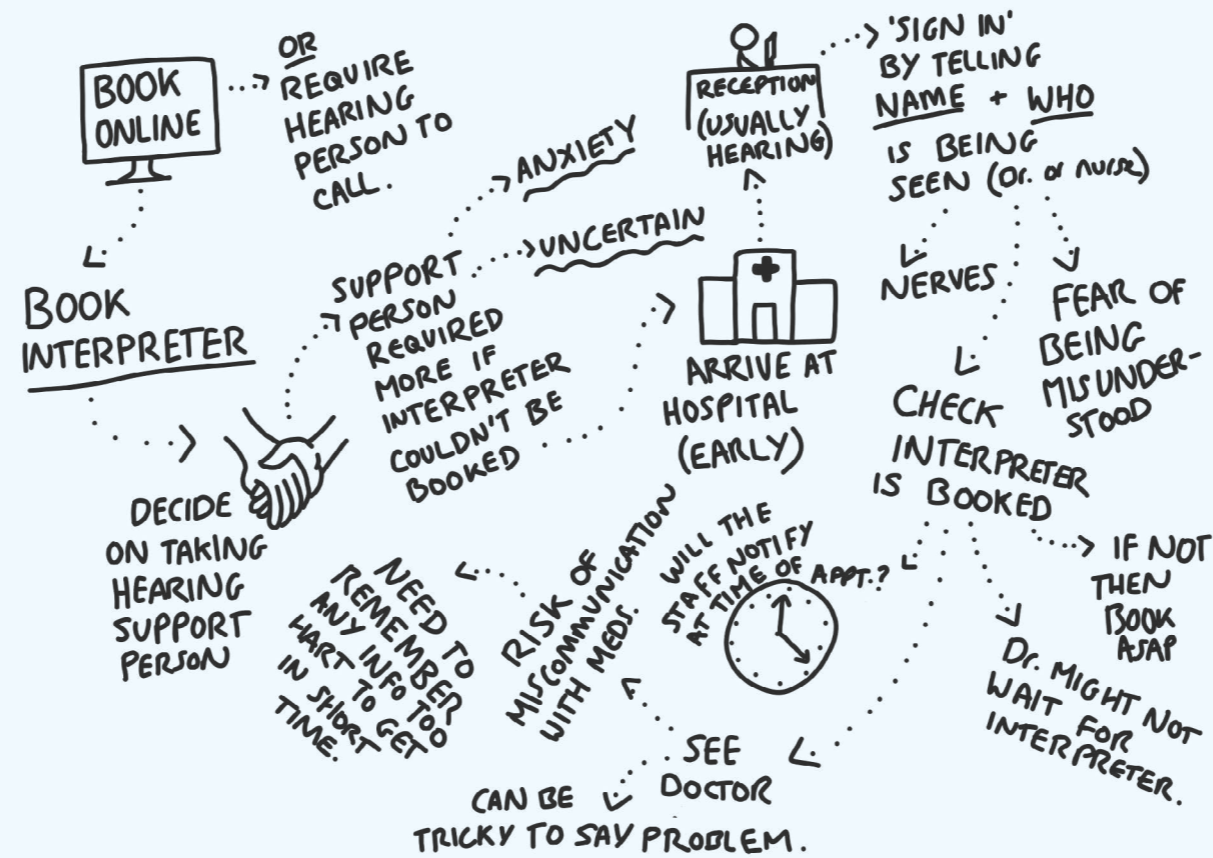 BOOK
ONLINE
OR
REQUIRE
HEARING
PERSON TO
CALL.
BOOK
INTERPRETER
DECIDE
ON TAKING
HEARING
SUPPORT
PERSON
SUPPORT
PERSON
REQUIRED
MORE IF
INTERPRETER
COULDN'T BE
BOOKED
ANXIETY
UNCERTAIN
ARRIVE AT
HOSPITAL
(EARLY)
RECEPTION
(USUALLY
HEARING)
'SIGN IN'
BY TELLING
NAME + WHO
IS BEING
SEEN (Dr. or nurse)
NERVES
FEAR OF
BEING
MISUNDER-
STOOD
CHECK
INTERPRETER
IS BOOKED
IF NOT
THEN
BOOK
ASAP
Dr. MIGHT NOT
WAIT FOR
INTERPRETER.
WILL THE
STAFF NOTIFY
AT TIME OF APPT.?
SEE
DOCTOR
RISK OF
MISCOMMUNICATION
WITH MEDS.
NEED TO
REMEMBER
ANY INFO TOO
HART TO GET
IN SHORT
TIME.
CAN BE
TRICKY TO SAY PROBLEM.